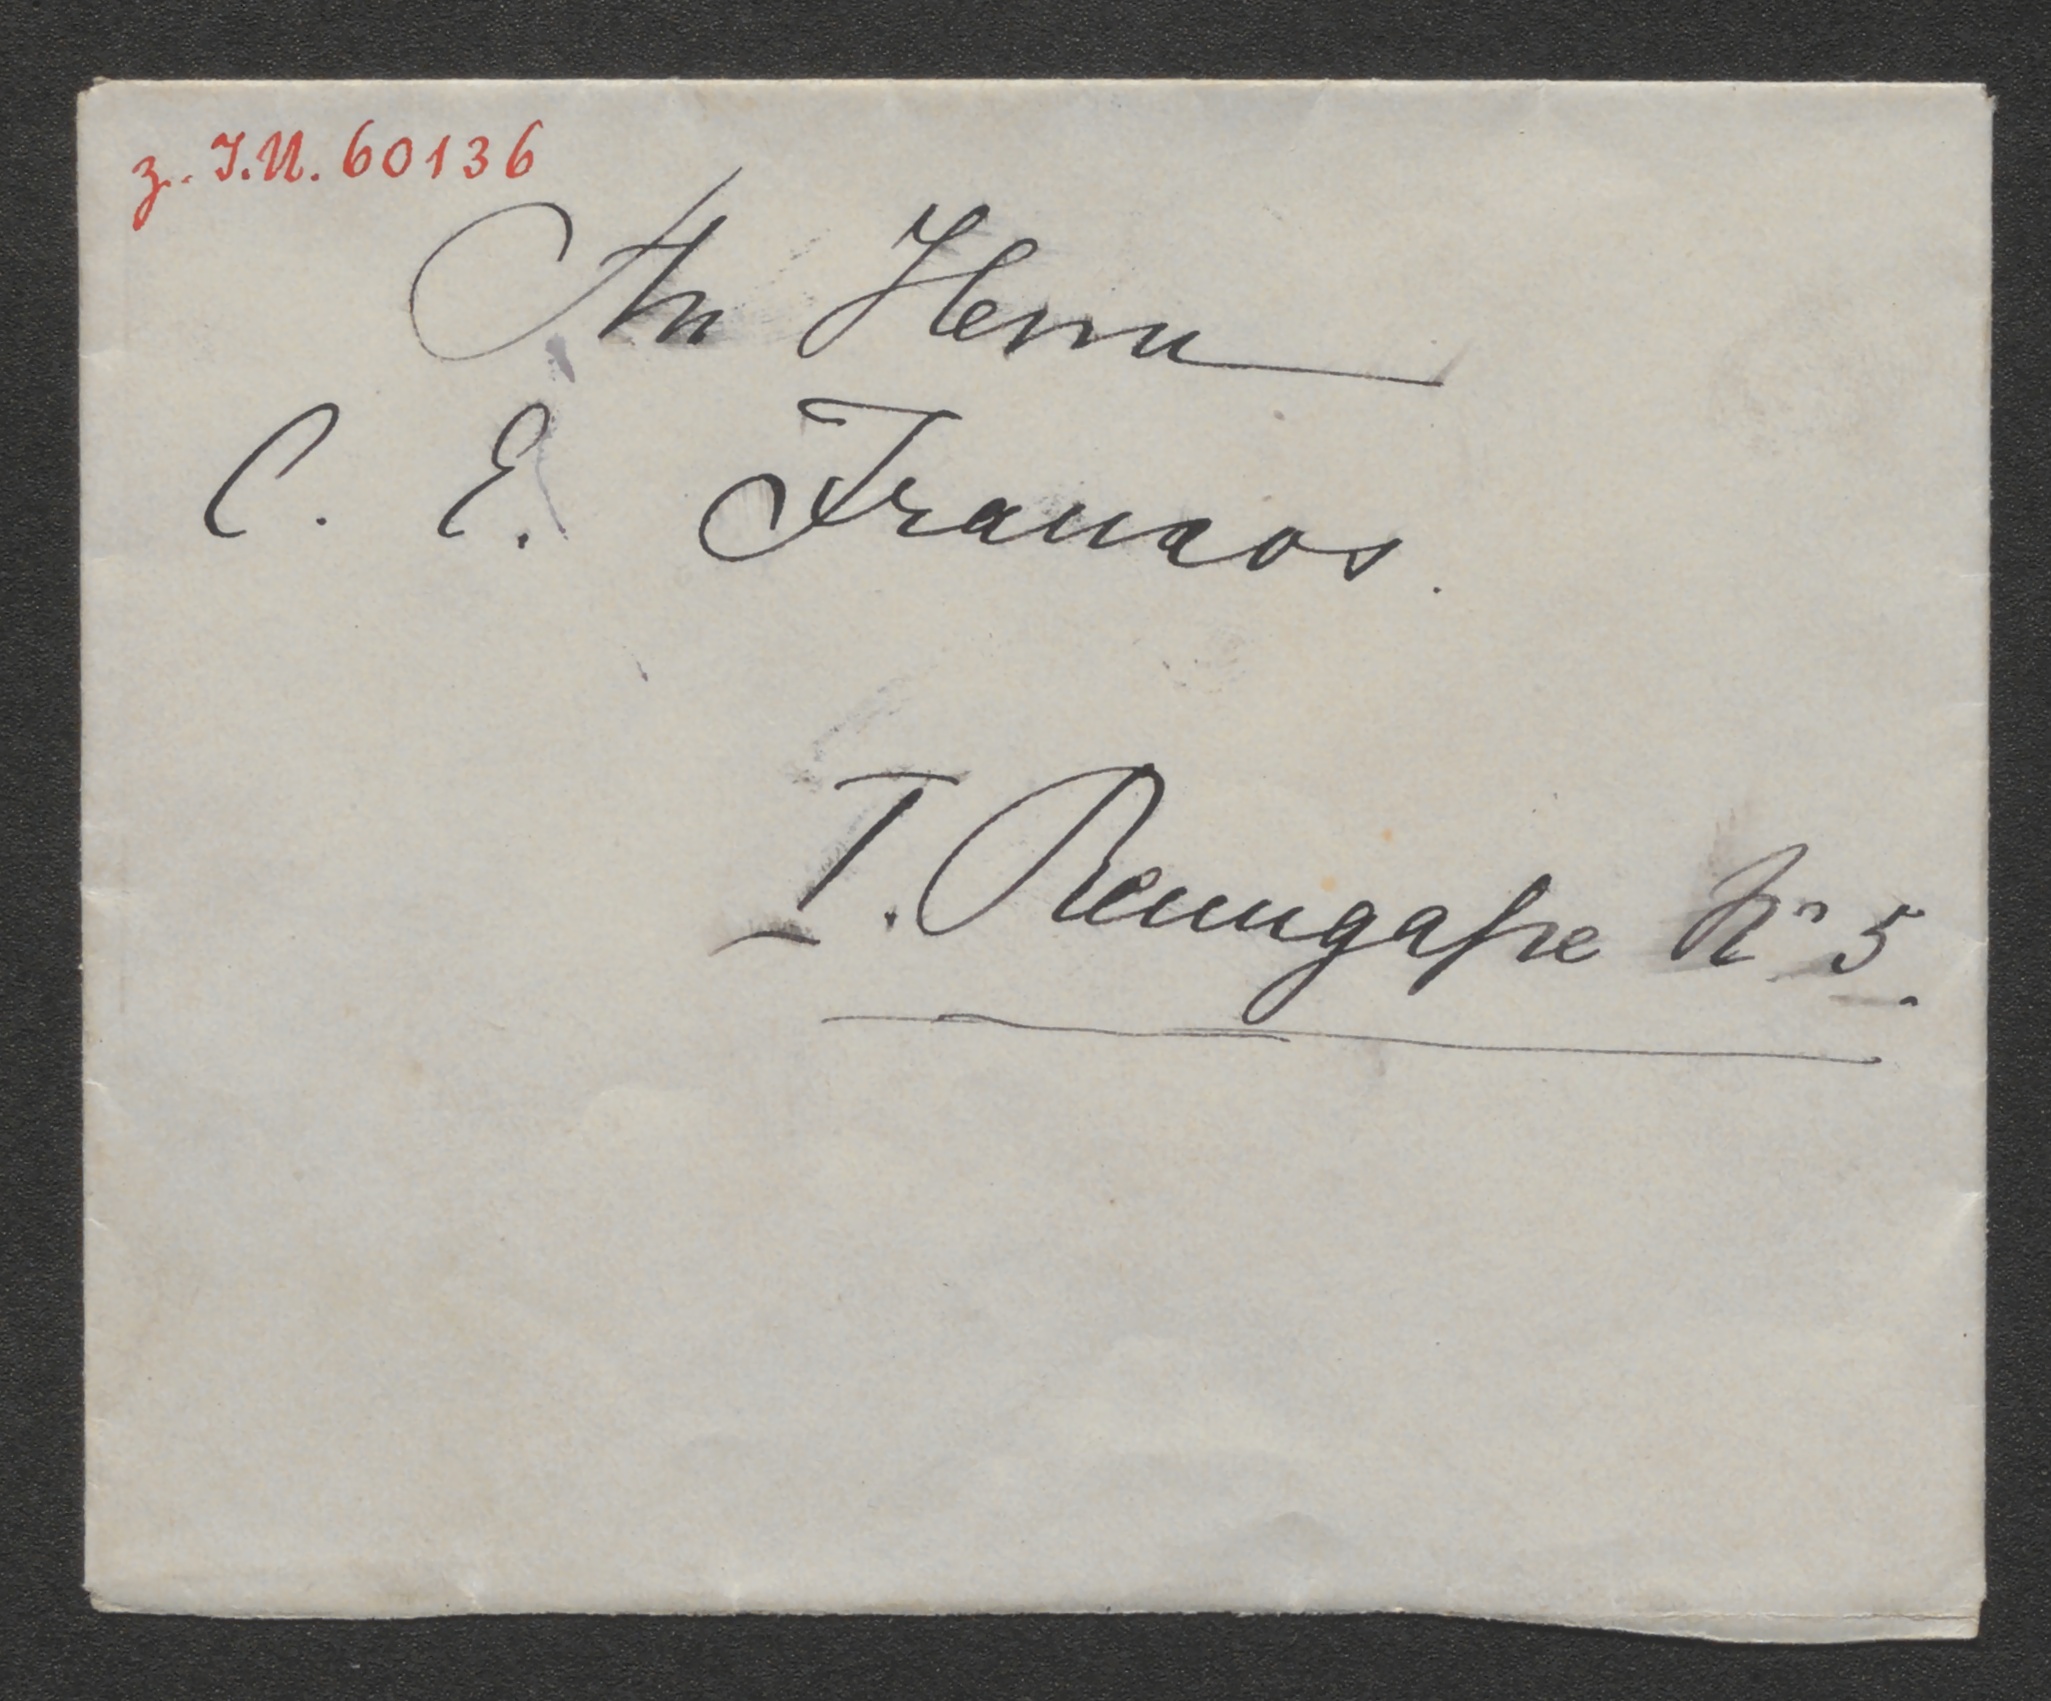 z. I.N. 60136
An Herrn
C. E. Franzos.
I. Renngasse No 5.